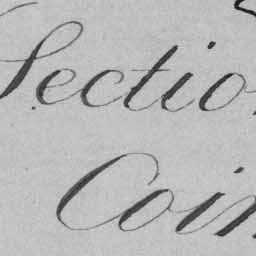 Sectio
Coin